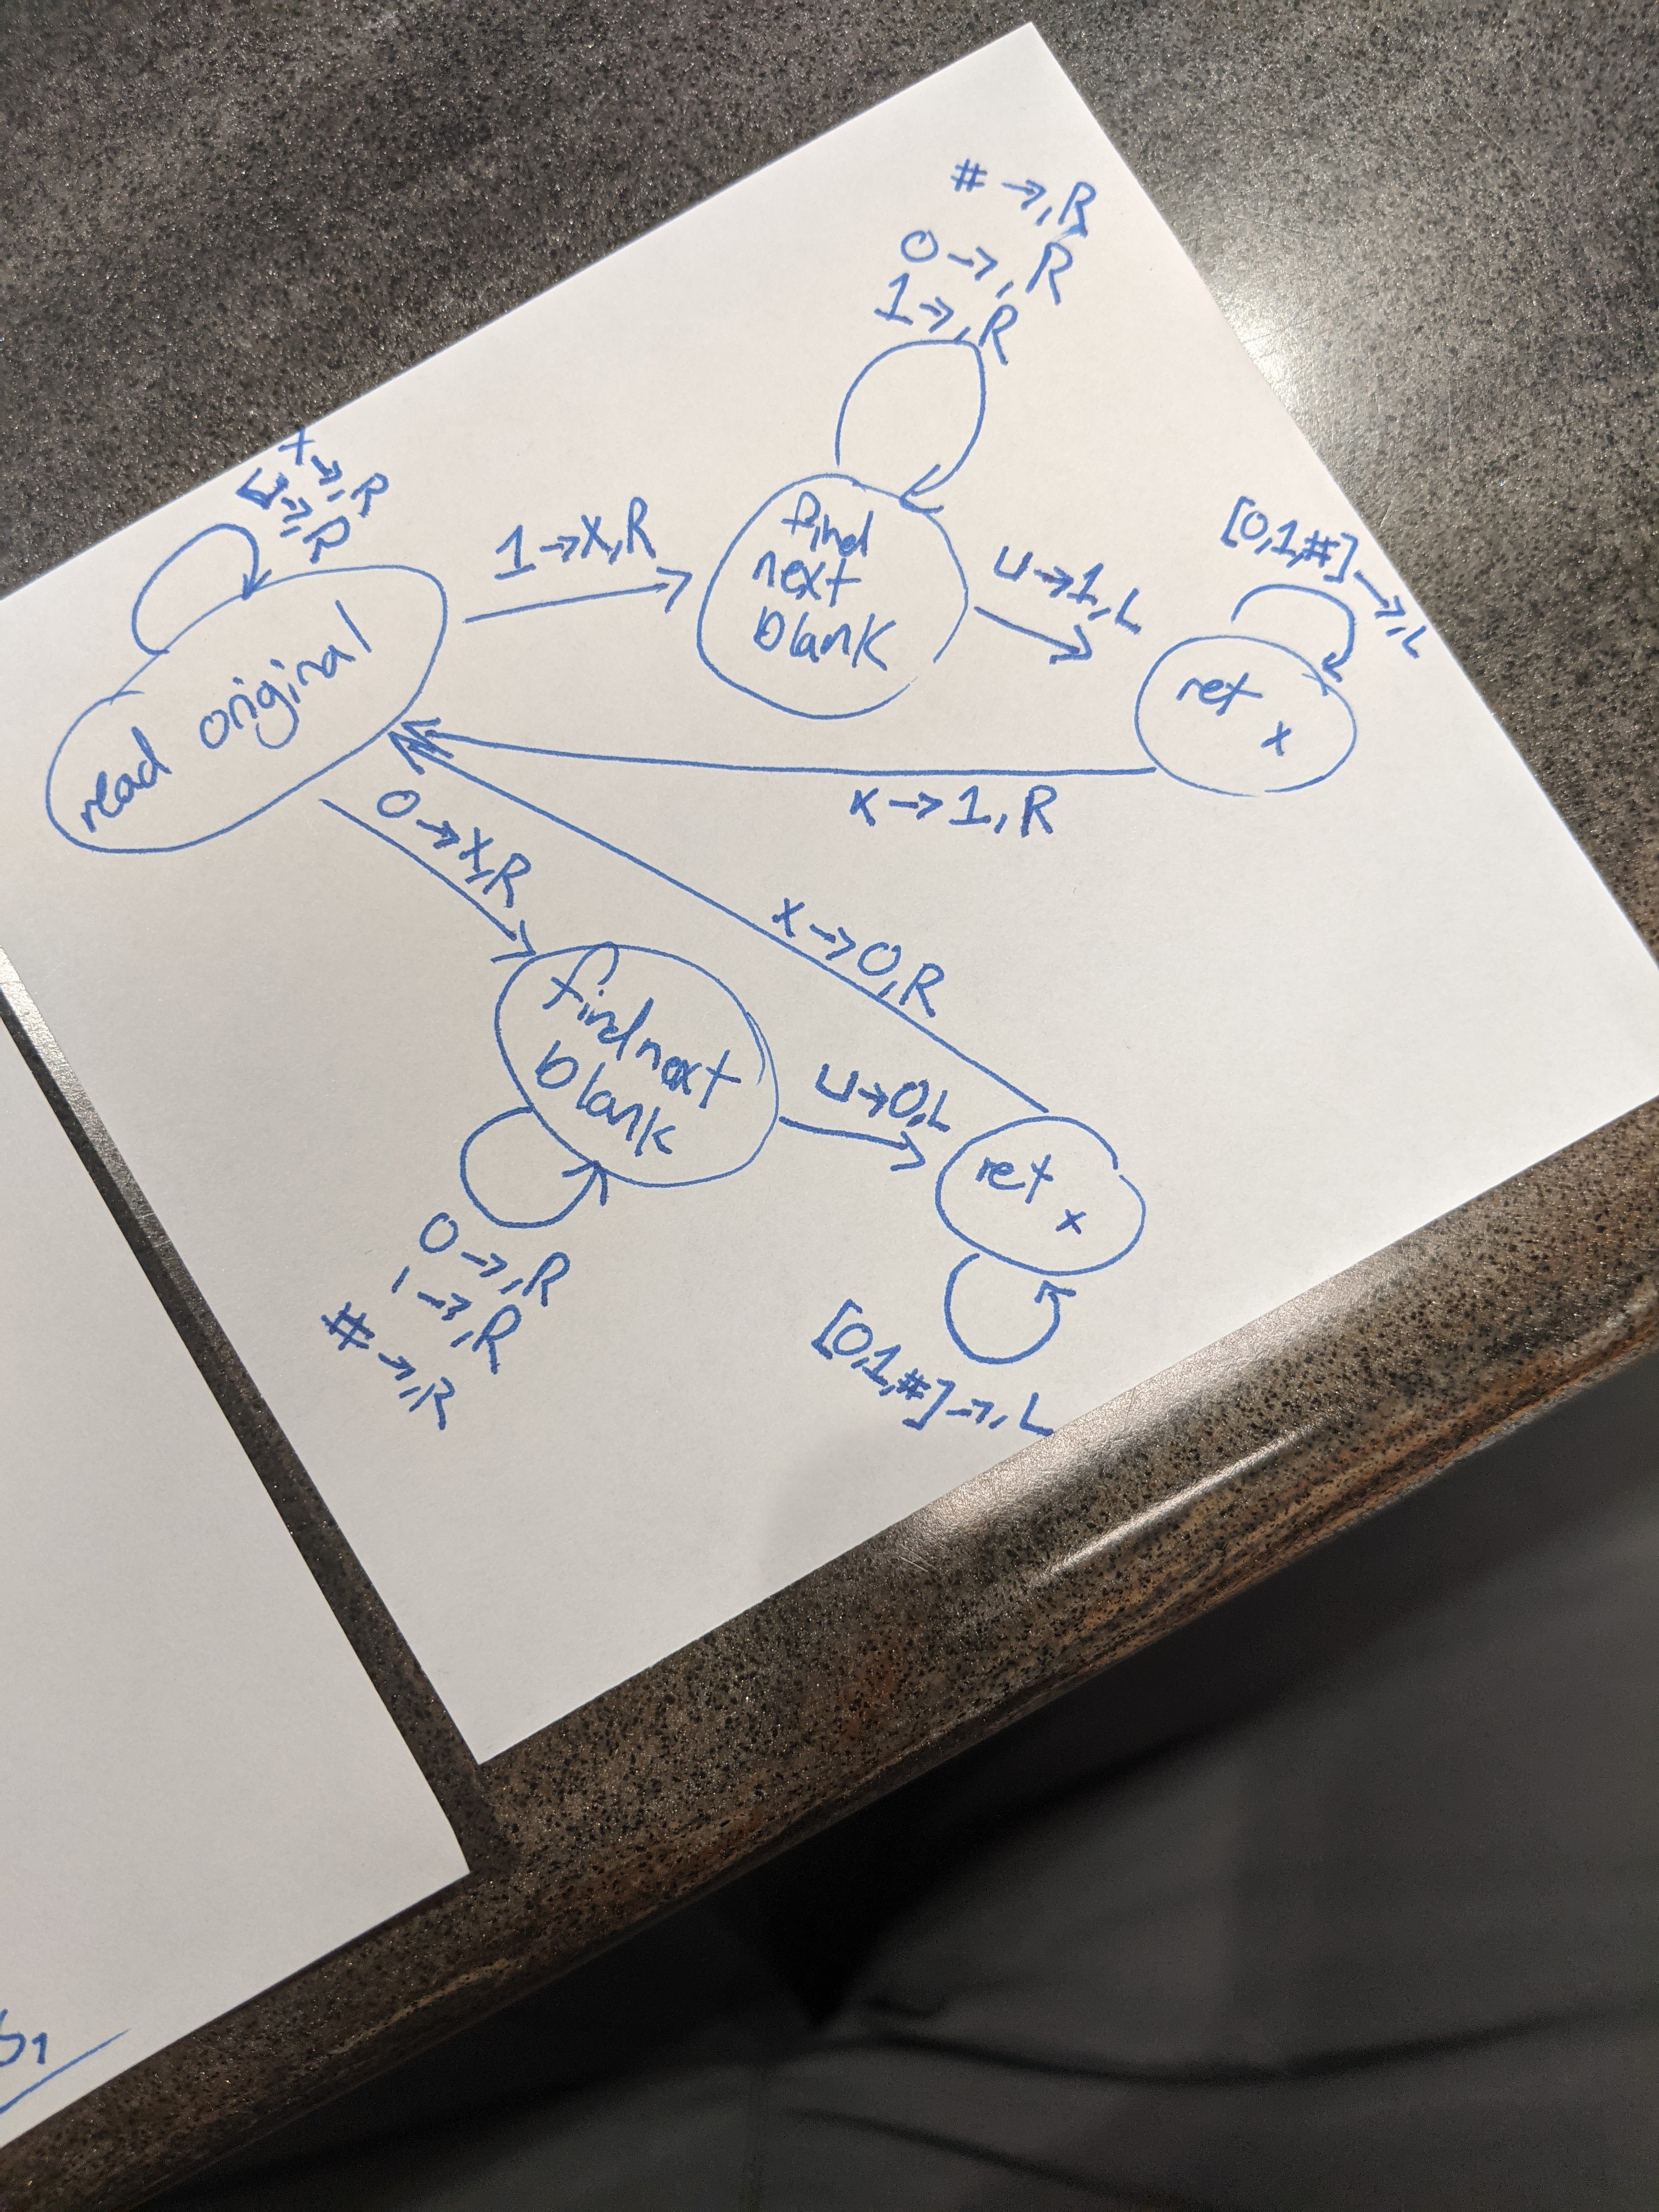 # →, R
0 →, R
1 →, R
x →, R
→, R
read original
1 → X, R
find
next
blank
u → 1, L
[0,1,#] →, L
ret
x
x → 1, R
0 → X, R
x → 0, R
find next
blank
u → 0, L
ret
x
0 →, R
1 →, R
# →, R
[0,1,#] →, L